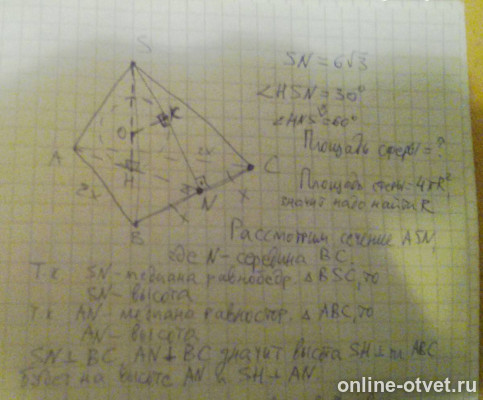 S
K
O
2x
A
H
C
2x
N
x
x
B
SN = 6√3
∠HSN = 30°
∠HNS = 60°
Площадь сферы = ?
Площадь сферы = 4πR²,
значит надо найти R
Рассмотрим сечение ASN,
где N - середина BC.
Т.к. SN - медиана равнобедр. △ BSC, то
SN - высота
Т.к. AN - медиана равностор. △ ABC, то
AN - высота
SN ⊥ BC, AN ⊥ BC значит SH ⊥ ABC
будет на высоте AN и SH ⊥ AN
online-otvet.ru